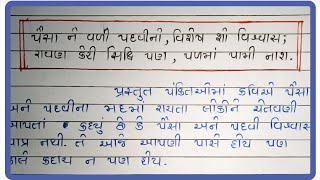 પૈસા ને વળી પદવીનો, વિશેષ શો વિશ્વાસ;
રાવણ કેરી સિદ્ધિ પણ, પળમાં પામી નાશ.
પ્રસ્તુત પંક્તિઓમાં કવિએ પૈસા
અને પદવીના મદમાં રાચતા લોકોને ચેતવણી
આપતાં કહ્યું છે કે પૈસા અને પદવી વિશ્વાસ
પાત્ર નથી. તે આજે આપણી પાસે હોય પણ
કાલે કદાચ ન પણ હોય.